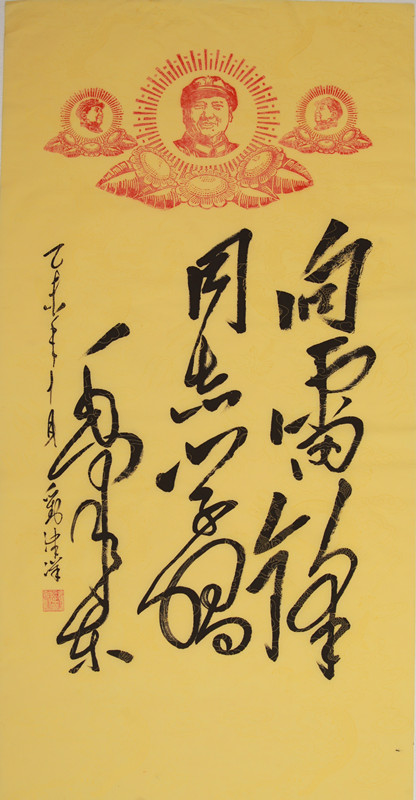 向雷锋
同志学习
毛泽东
乙未年十月